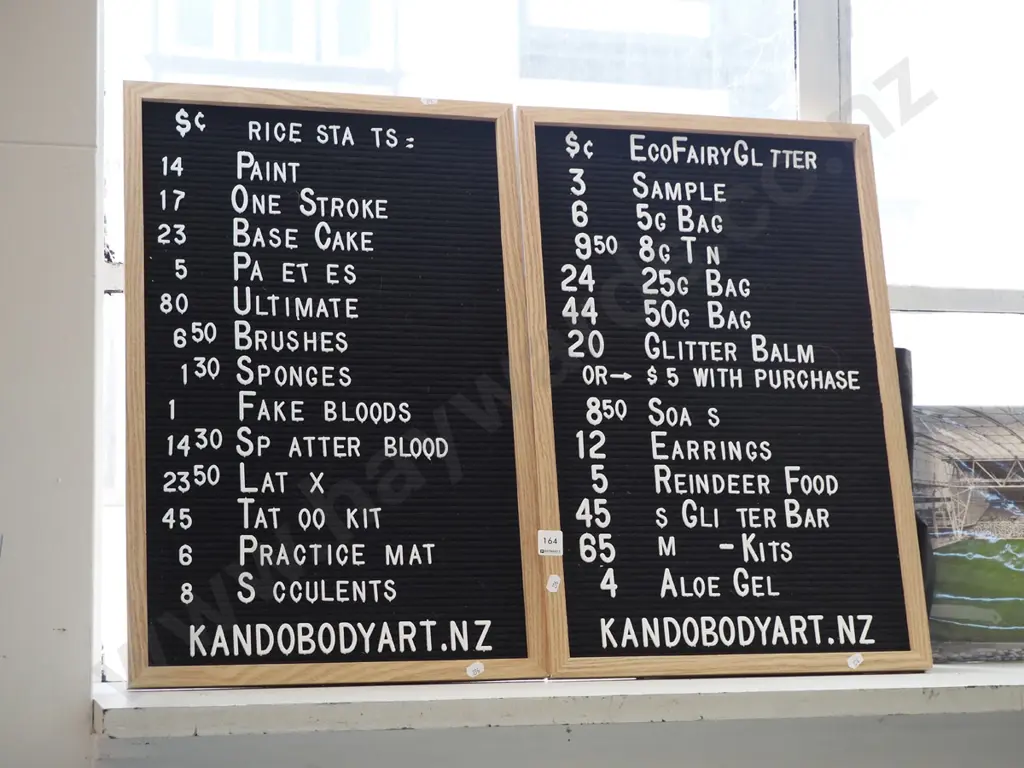 $¢ RICE STA TS:
14 PAINT
17 ONE STROKE
23 BASE CAKE
5 PA ET ES
80 ULTIMATE
6 50 BRUSHES
1 30 SPONGES
1 FAKE BLOODS
14 30 SP ATTER BLOOD
23 50 LAT X
45 TAT OO KIT
6 PRACTICE MAT
8 S CCULENTS
KANDOBODYART.NZ
$¢ ECOFAIRYGL TTER
3 SAMPLE
6 5G BAG
9 50 8G T N
24 25G BAG
44 50G BAG
20 GLITTER BALM
OR→ $5 WITH PURCHASE
8 50 SOA S
12 EARRINGS
5 REINDEER FOOD
45 S GLI TER BAR
65 M -KITS
4 ALOE GEL
KANDOBODYART.NZ
164